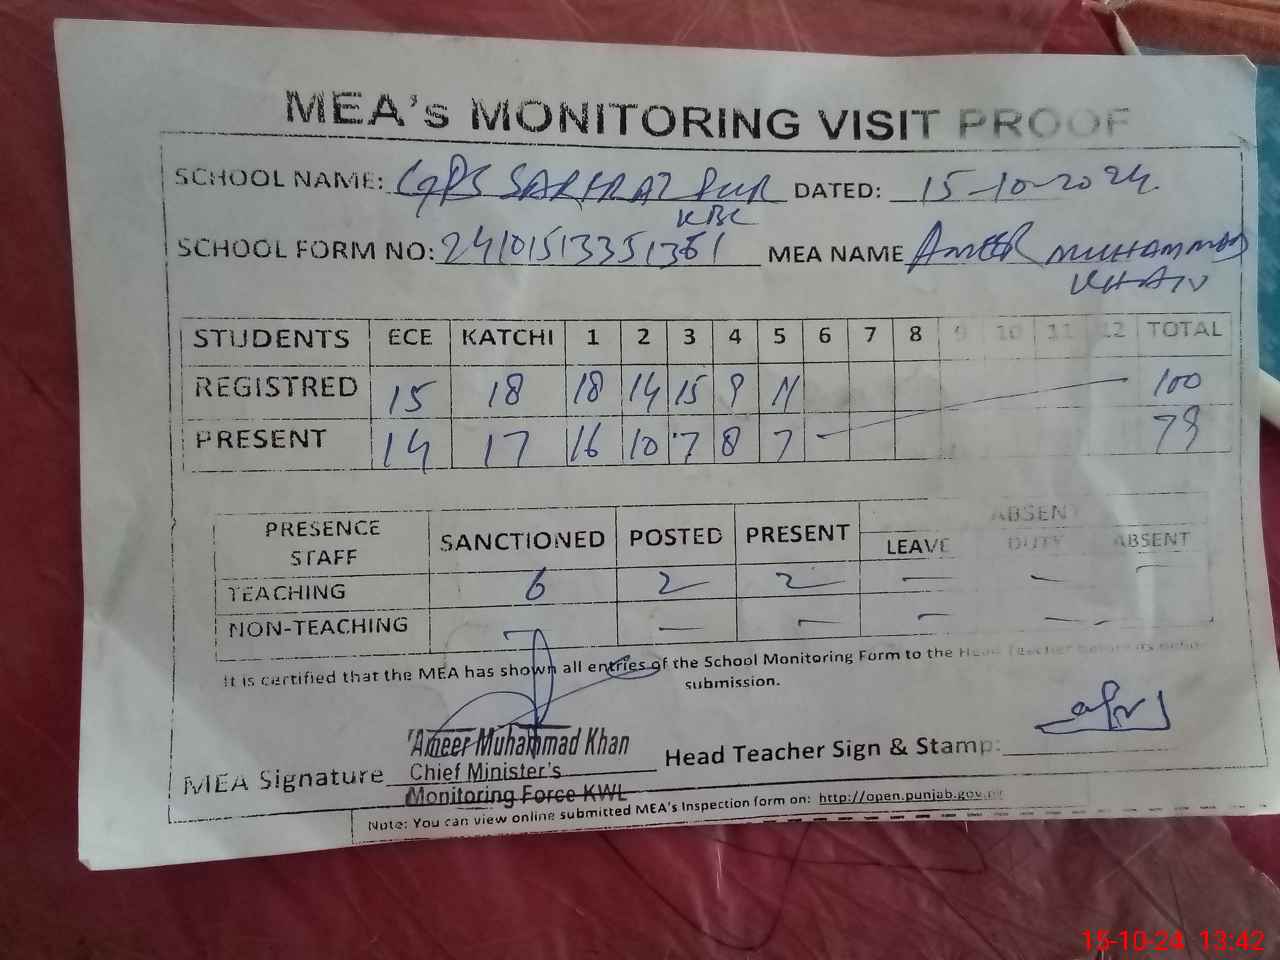 MEA's MONITORING VISIT PROOF
SCHOOL NAME: GPS SARFRAZ PUR DATED: 15-10-2024
KBC
SCHOOL FORM NO: 24101513351361 MEA NAME AMEER MUHAMMAD
KHAN
STUDENTS ECE KATCHI 1 2 3 4 5 6 7 8 9 10 11 12 TOTAL
REGISTRED 15 18 18 14 15 9 11 100
PRESENT 14 17 16 10 7 8 7 79
PRESENCE STAFF SANCTIONED POSTED PRESENT ABSENT
LEAVE DUTY ABSENT
TEACHING 6 2 2 — — —
NON-TEACHING — — — — —
It is certified that the MEA has shown all entries of the School Monitoring Form to the Head Teacher before its online
submission.
Ameer Muhammad Khan
MEA Signature Chief Minister's Head Teacher Sign & Stamp:
Monitoring Force KWL
Note: You can view online submitted MEA's Inspection form on: http://open.punjab.gov.pk
15-10-24 13:42